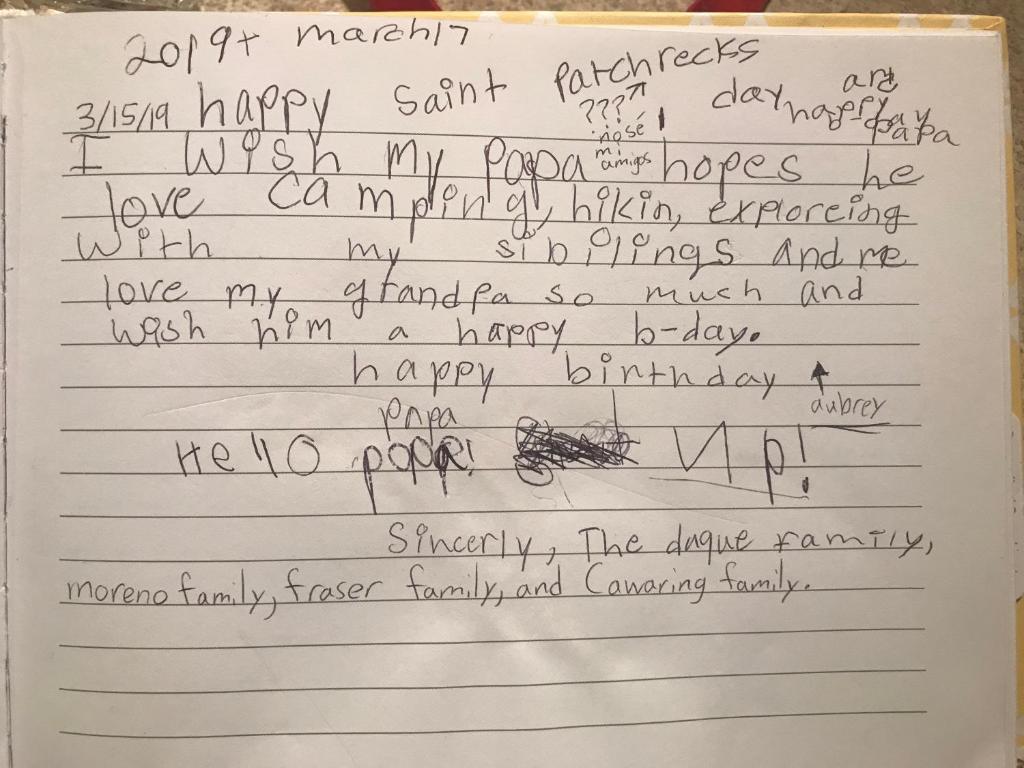 2019+ march 17
3/15/19 happy Saint Patchrecks day and happy day papa
???
no sé
mi
amigs
I wish my Papa hopes he
love Camping, hikin, exploreing
with my sibilings and me
love my grandpa so much and
wish him a happy b-day.
happy birthday
aubrey
papa
Hello popa! Up!
Sincerly, The duque family,
moreno family, fraser family, and Cawaring family.